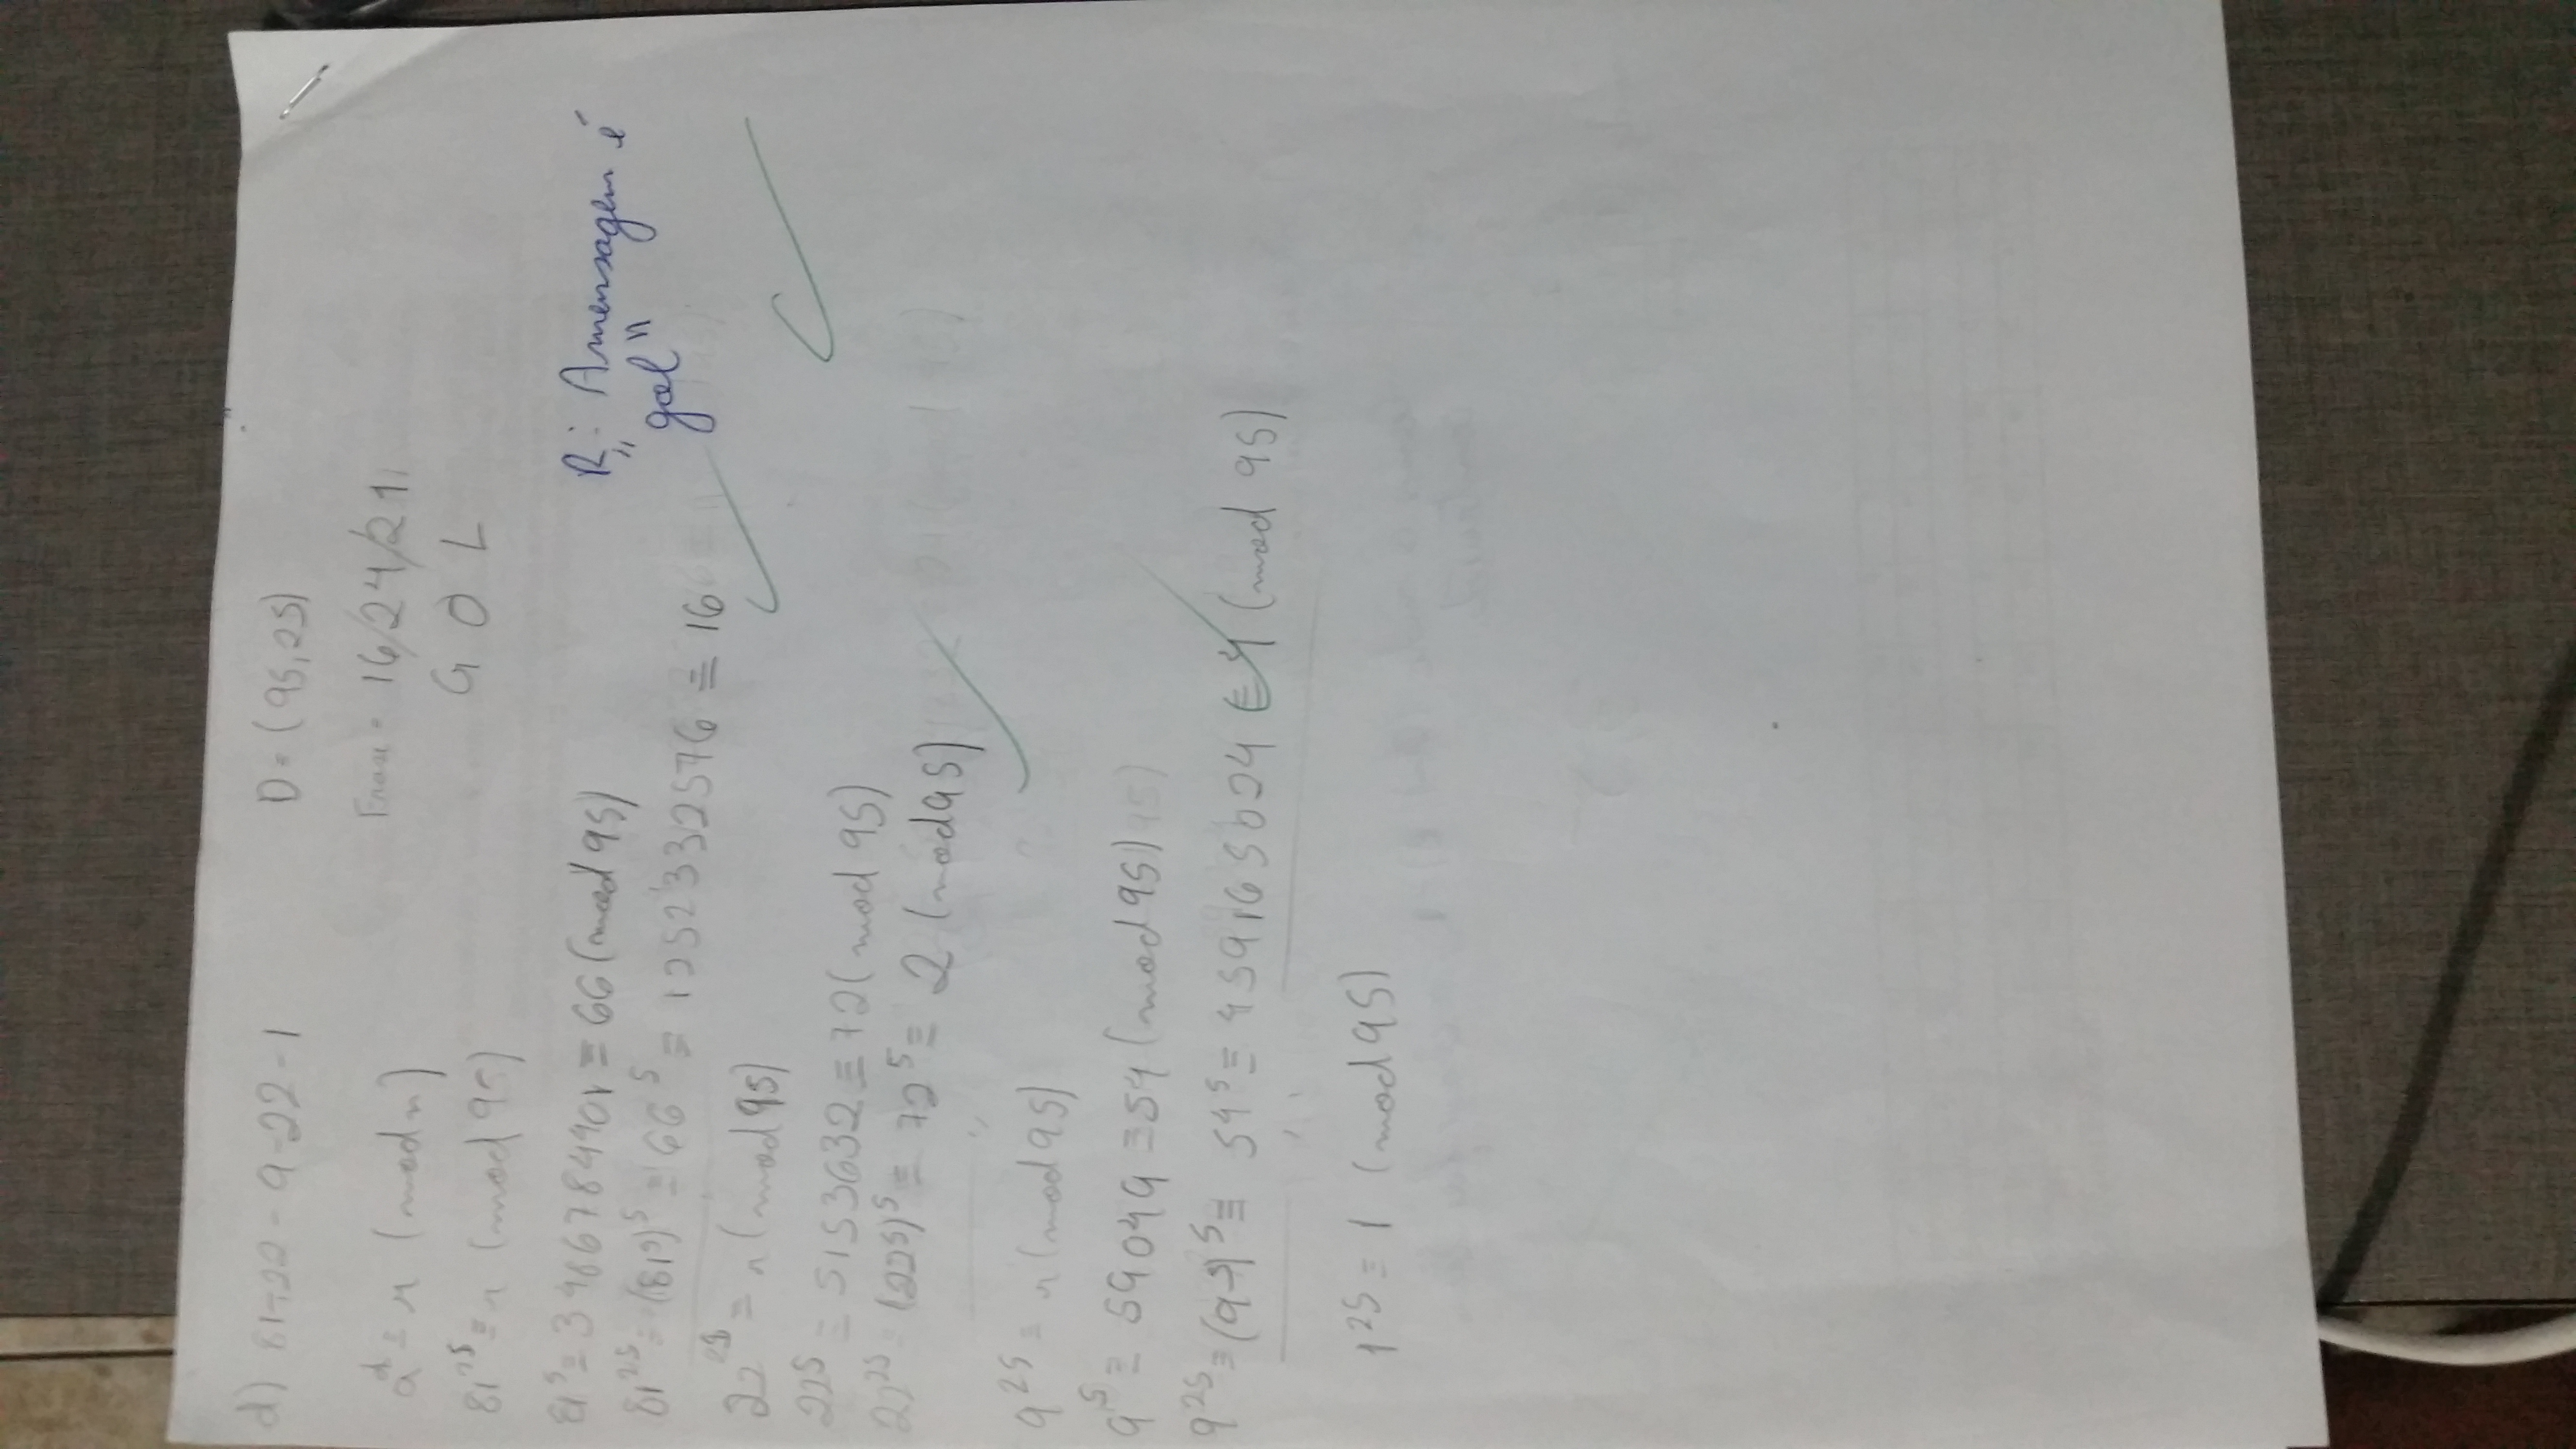 d) 81-22-9-22-1
D = (95,25)
a^d ≡ r (mod n)
Frase = 16/24/21
G O L
81^25 ≡ r (mod 95)
81^5 ≡ 3486784401 ≡ 66 (mod 95)
81^25 ≡ (81^5)^5 ≡ 66^5 ≡ 1252332576 ≡ 16
R: A mensagem é
"gol"
22^25 ≡ r (mod 95)
22^5 ≡ 5153632 ≡ 72 (mod 95)
22^25 ≡ (22^5)^5 ≡ 72^5 ≡ 2 (mod 95)
9^25 ≡ r (mod 95)
9^5 ≡ 59049 ≡ 54 (mod 95)
9^25 ≡ (9^5)^5 ≡ 54^5 ≡ 459165024 ≡ 4 (mod 95)
1^25 ≡ 1 (mod 95)